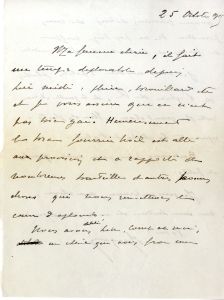 25 Octobre
Ma femme chérie, il fait
un temps déplorable depuis
hier midi, pluie, brouillard etc
et je vous assure que ce n'est
pas bien gai. Heureusement
le brave fourrier Noël est allé
aux provisions et a rapporté de
nombreuses bouteilles et autres bonnes
choses qui nous remettent le
cœur d'aplomb.
Nous avons